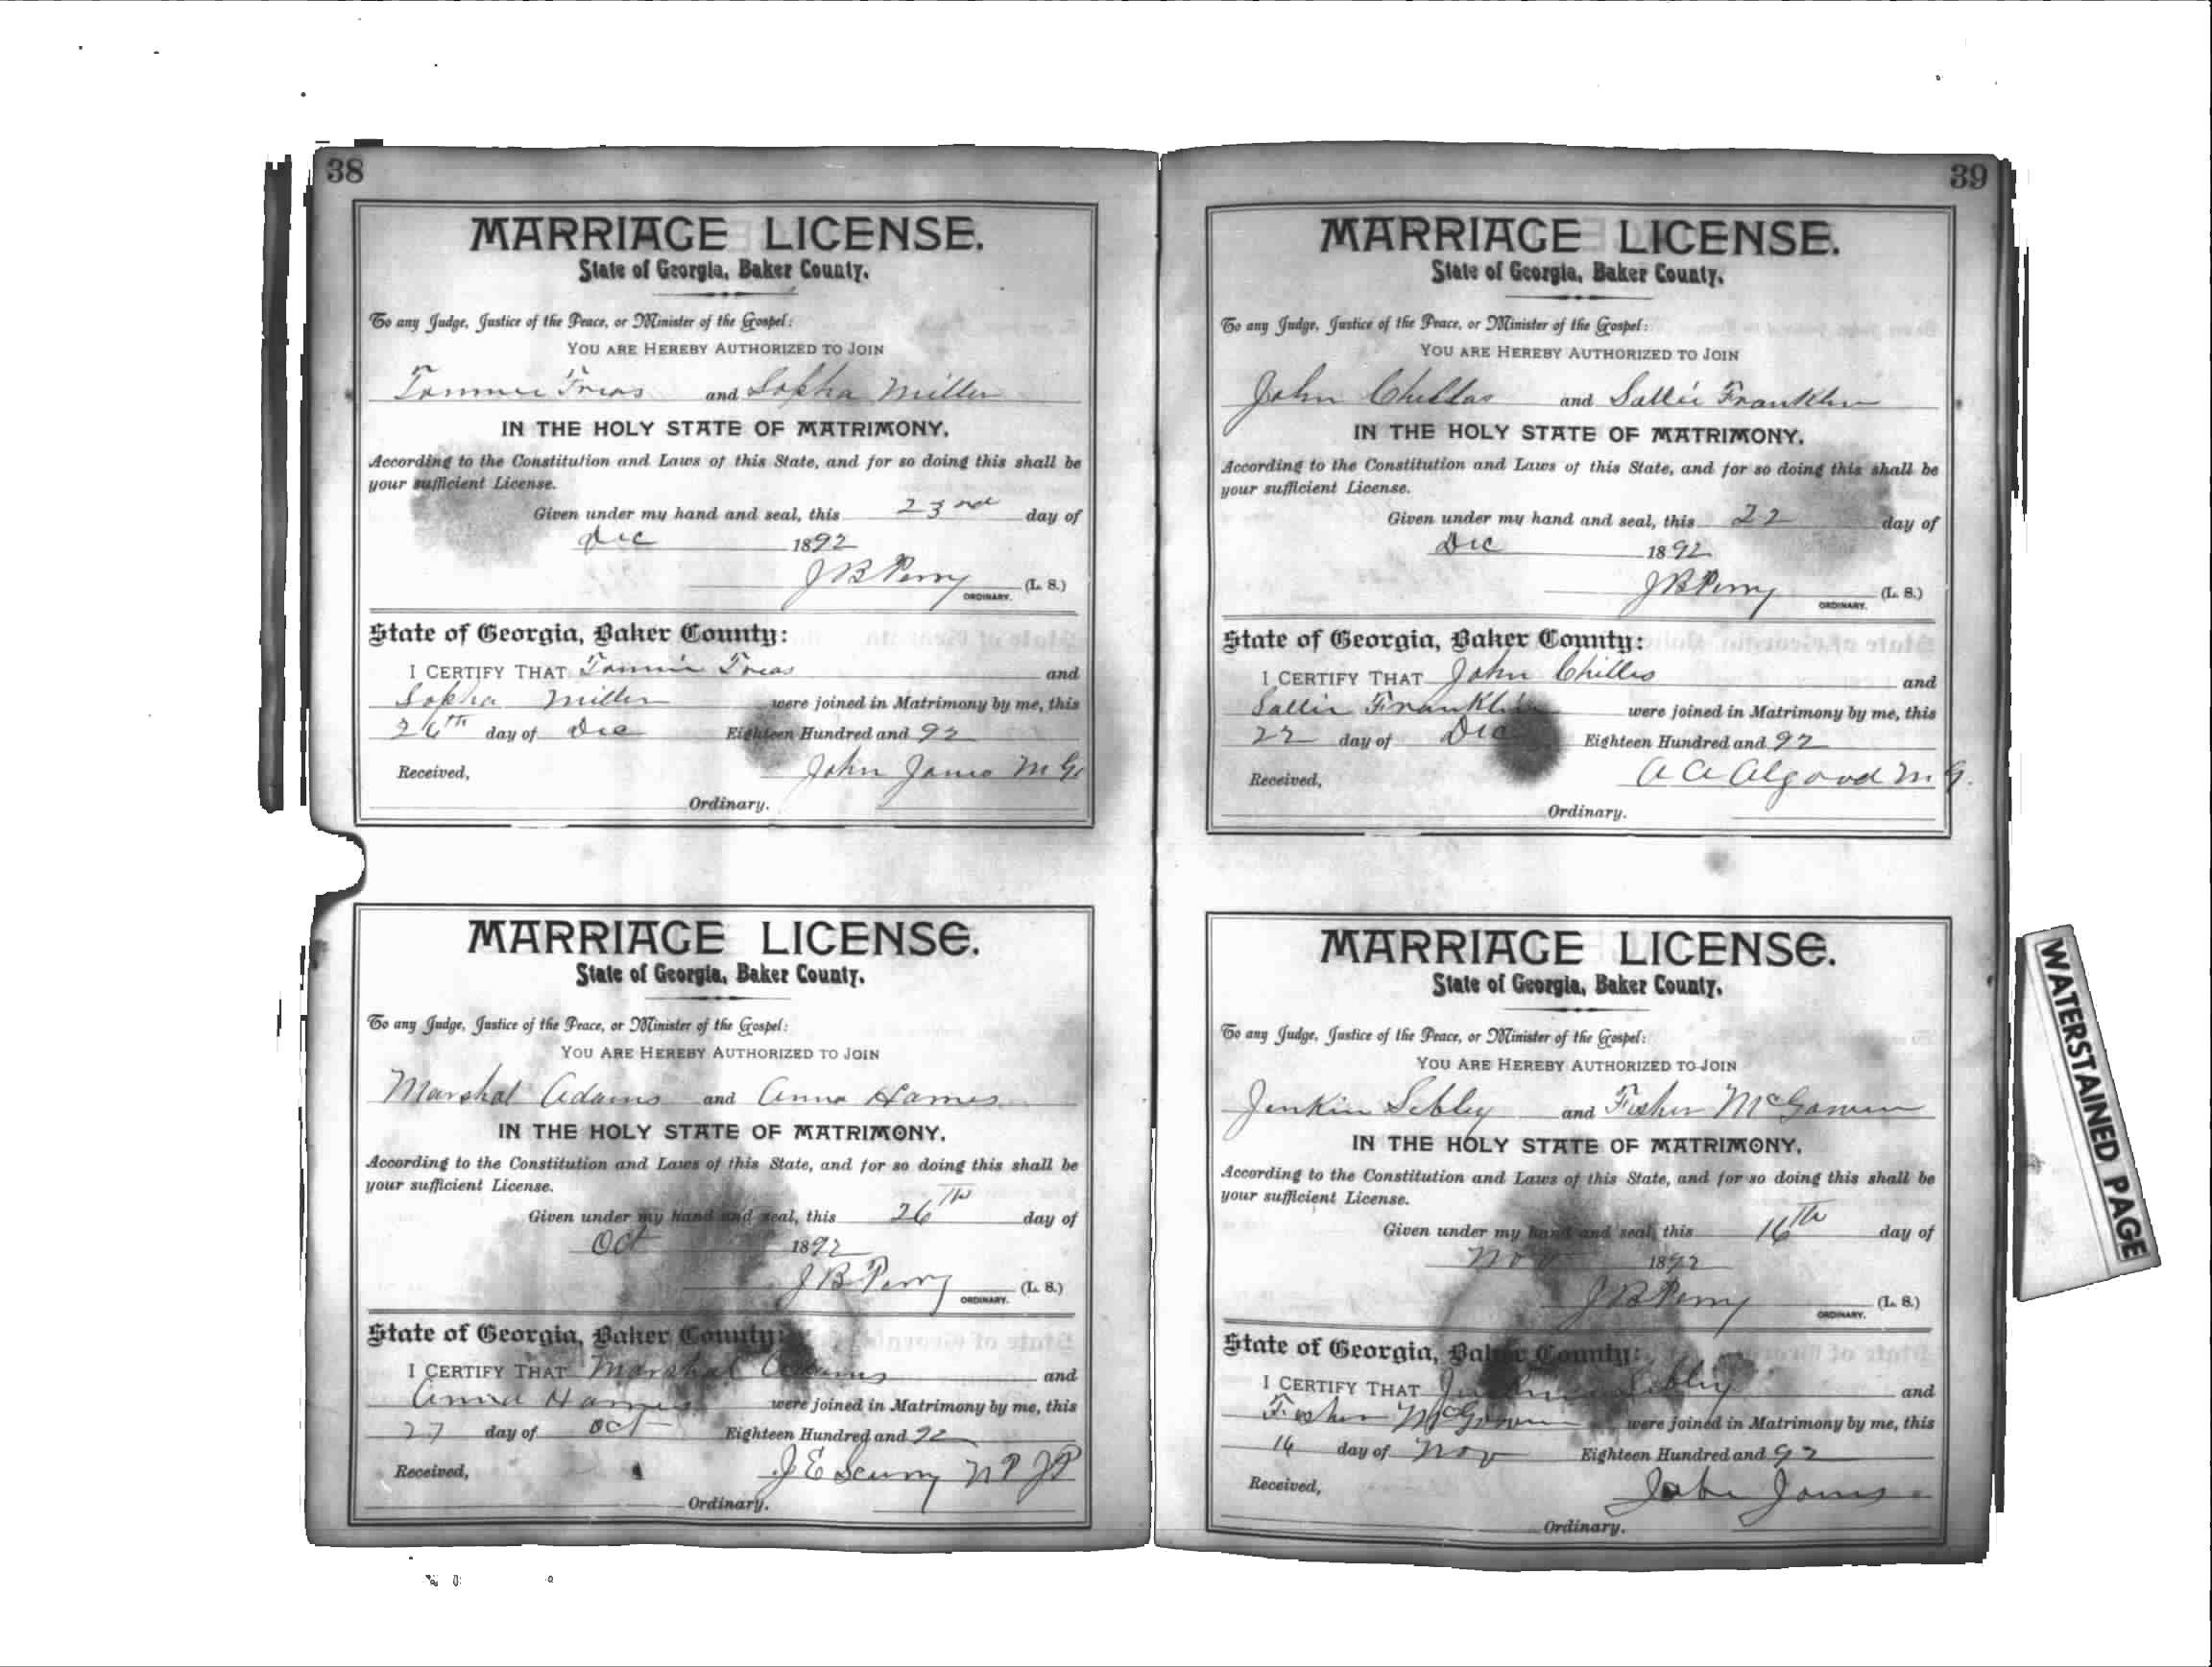 38
MARRIAGE LICENSE.
State of Georgia, Baker County.
To any Judge, Justice of the Peace, or Minister of the Gospel:
YOU ARE HEREBY AUTHORIZED TO JOIN
and Sopha Miller
IN THE HOLY STATE OF MATRIMONY,
According to the Constitution and Laws of this State, and for so doing this shall be
your sufficient License.
Given under my hand and seal, this 23rd day of
Dec 1892
J B Perry (L. S.)
ORDINARY.
State of Georgia, Baker County:
I CERTIFY THAT and
Sopha Miller were joined in Matrimony by me, this
26TH day of Dec Eighteen Hundred and 92
Received, John James M G
Ordinary.
MARRIAGE LICENSE.
State of Georgia, Baker County.
To any Judge, Justice of the Peace, or Minister of the Gospel:
YOU ARE HEREBY AUTHORIZED TO JOIN
Marshal Adams and Anna
IN THE HOLY STATE OF MATRIMONY,
According to the Constitution and Laws of this State, and for so doing this shall be
your sufficient License.
Given under my hand and seal, this 26TH day of
Oct 1892
J B Perry (L. S.)
ORDINARY.
State of Georgia, Baker County:
I CERTIFY THAT Marshal Adams and
Anna were joined in Matrimony by me, this
27 day of Oct Eighteen Hundred and 92
Received, J E Scurry N P J P
Ordinary.
39
MARRIAGE LICENSE.
State of Georgia, Baker County.
To any Judge, Justice of the Peace, or Minister of the Gospel:
YOU ARE HEREBY AUTHORIZED TO JOIN
John and Sallie Franklin
IN THE HOLY STATE OF MATRIMONY,
According to the Constitution and Laws of this State, and for so doing this shall be
your sufficient License.
Given under my hand and seal, this 22 day of
Dec 1892
J B Perry (L. S.)
ORDINARY.
State of Georgia, Baker County:
I CERTIFY THAT John and
Sallie Franklin were joined in Matrimony by me, this
22 day of Dec Eighteen Hundred and 92
Received, A A Algood M G.
Ordinary.
MARRIAGE LICENSE.
State of Georgia, Baker County.
To any Judge, Justice of the Peace, or Minister of the Gospel:
YOU ARE HEREBY AUTHORIZED TO JOIN
Jenkin Sibley and
IN THE HOLY STATE OF MATRIMONY,
According to the Constitution and Laws of this State, and for so doing this shall be
your sufficient License.
Given under my hand and seal, this 16Th day of
Nov 1892
J B Perry (L. S.)
ORDINARY.
State of Georgia, Baker County:
I CERTIFY THAT Sibley and
were joined in Matrimony by me, this
16 day of Nov Eighteen Hundred and 92
Received,
Ordinary.
WATERSTAINED PAGE